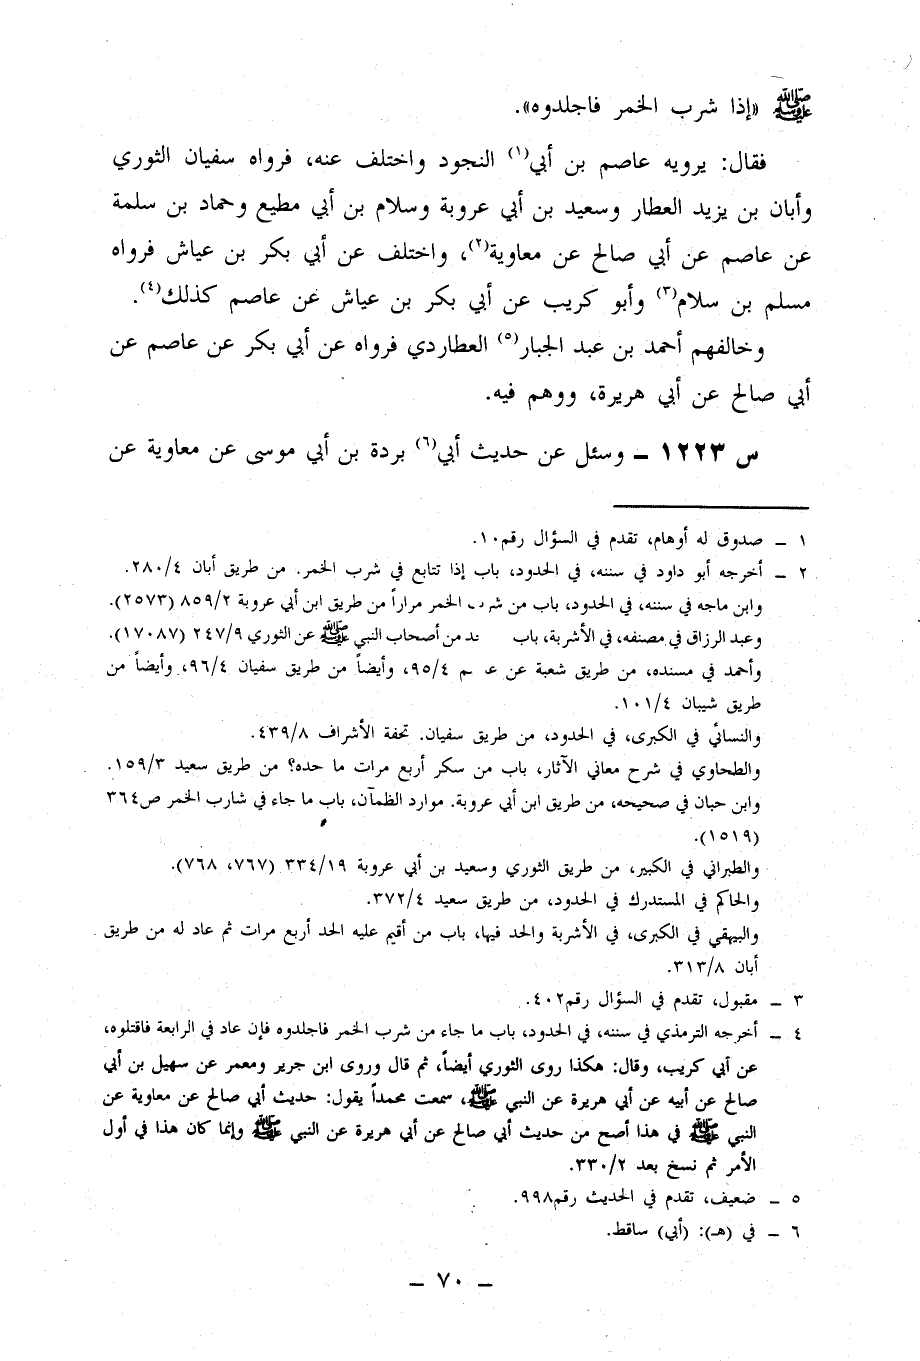 ﷺ «إذا شرب الخمر فاجلدوه».
فقال: يرويه عاصم بن أبي(١) النجود واختلف عنه، فرواه سفيان الثوري
وأبان بن يزيد العطار وسعيد بن أبي عروبة وسلام بن أبي مطيع وحماد بن سلمة
عن عاصم عن أبي صالح عن معاوية(٢)، واختلف عن أبي بكر بن عياش فرواه
مسلم بن سلام(٣) وأبو كريب عن أبي بكر بن عياش عن عاصم كذلك(٤).
وخالفهم أحمد بن عبد الجبار(٥) العطاردي فرواه عن أبي بكر عن عاصم عن
أبي صالح عن أبي هريرة، ووهم فيه.
س ١٢٢٣ ـ وسئل عن حديث أبي(٦) بردة بن أبي موسى عن معاوية عن
١ ـ صدوق له أوهام، تقدم في السؤال رقم١٠.
٢ ـ أخرجه أبو داود في سننه، في الحدود، باب إذا تتابع في شرب الخمر. من طريق أبان ٢٨٠/٤.
وابن ماجه في سننه، في الحدود، باب من شرب الخمر مراراً من طريق ابن أبي عروبة ٨٥٩/٢ (٢٥٧٣).
وعبد الرزاق في مصنفه، في الأشربة، باب من أصحاب النبي ﷺ عن الثوري ٢٤٧/٩ (١٧٠٨٧).
وأحمد في مسنده، من طريق شعبة عن عاصم ٩٥/٤، وأيضاً من طريق سفيان ٩٦/٤، وأيضاً من
طريق شيبان ١٠١/٤.
والنسائي في الكبرى، في الحدود، من طريق سفيان. تحفة الأشراف ٤٣٩/٨.
والطحاوي في شرح معاني الآثار، باب من سكر أربع مرات ما حده؟ من طريق سعيد ١٥٩/٣.
وابن حبان في صحيحه، من طريق ابن أبي عروبة. موارد الظمآن، باب ما جاء في شارب الخمر ص٣٦٤
(١٥١٩).
والطبراني في الكبير، من طريق الثوري وسعيد بن أبي عروبة ٣٣٤/١٩ (٧٦٧، ٧٦٨).
والحاكم في المستدرك في الحدود، من طريق سعيد ٣٧٢/٤.
والبيهقي في الكبرى، في الأشربة والحد فيها، باب من أقيم عليه الحد أربع مرات ثم عاد له من طريق
أبان ٣١٣/٨.
٣ ـ مقبول، تقدم في السؤال رقم٤٠٢.
٤ ـ أخرجه الترمذي في سننه، في الحدود، باب ما جاء من شرب الخمر فاجلدوه فإن عاد في الرابعة فاقتلوه،
عن أبي كريب، وقال: هكذا روى الثوري أيضاً، ثم قال وروى ابن جرير ومعمر عن سهيل بن أبي
صالح عن أبيه عن أبي هريرة عن النبي ﷺ، سمعت محمداً يقول: حديث أبي صالح عن معاوية عن
النبي ﷺ في هذا أصح من حديث أبي صالح عن أبي هريرة عن النبي ﷺ وإنما كان هذا في أول
الأمر ثم نسخ بعد ٣٣٠/٢.
٥ ـ ضعيف، تقدم في الحديث رقم٩٩٨.
٦ ـ في (هـ): (أبي) ساقط.
ـ ٧٠ ـ